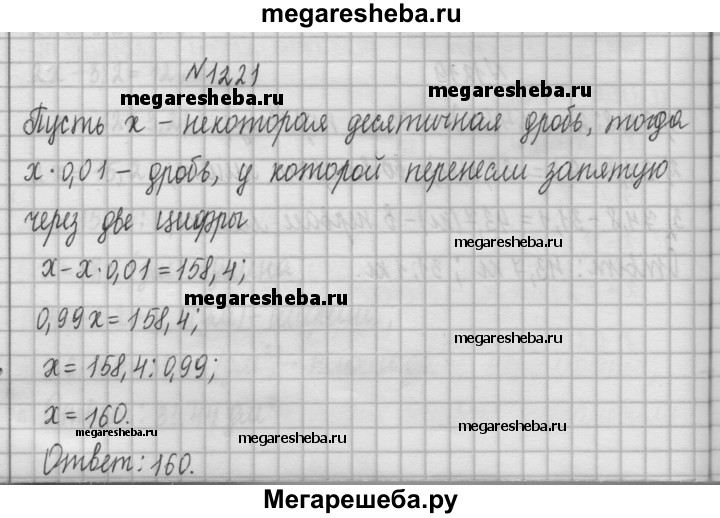 megaresheba.ru
№1221
megaresheba.ru
megaresheba.ru
Пусть x – некоторая десятичная дробь, тогда
x · 0,01 – дробь, у которой перенесли запятую
через две цифры
megaresheba.ru
x – x · 0,01 = 158,4;
megaresheba.ru
0,99x = 158,4;
megaresheba.ru
x = 158,4 : 0,99;
x = 160.
megaresheba.ru
megaresheba.ru
megaresheba.ru
Ответ: 160.
Мегарешеба.ру